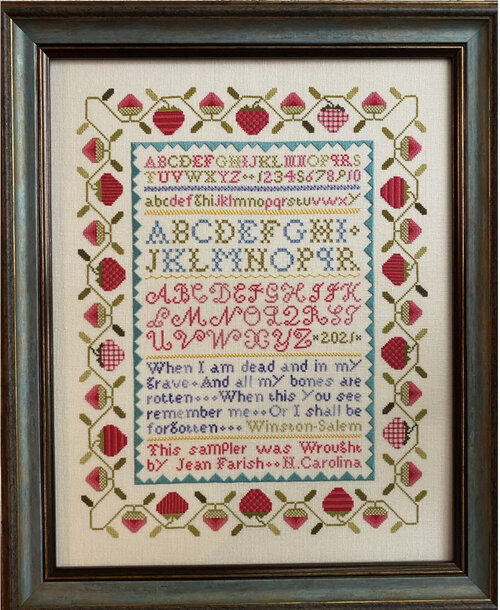 ABCDEFGHIJKLMNOPQRS
TUVWXYZ··12345678910
abcdefghijklmnopqrstuvwxy
ABCDEFGHI·
JKLMNOPQR
ABCDEFGHIJK
LMNOPQRST
UVWXYZ·2021·
When I am dead and in my
grave·And all my bones are
rotten···When this You see
remember me··Or I shall be
forgotten···Winston-Salem
This sampler was Wrought
by Jean Farish··N.Carolina